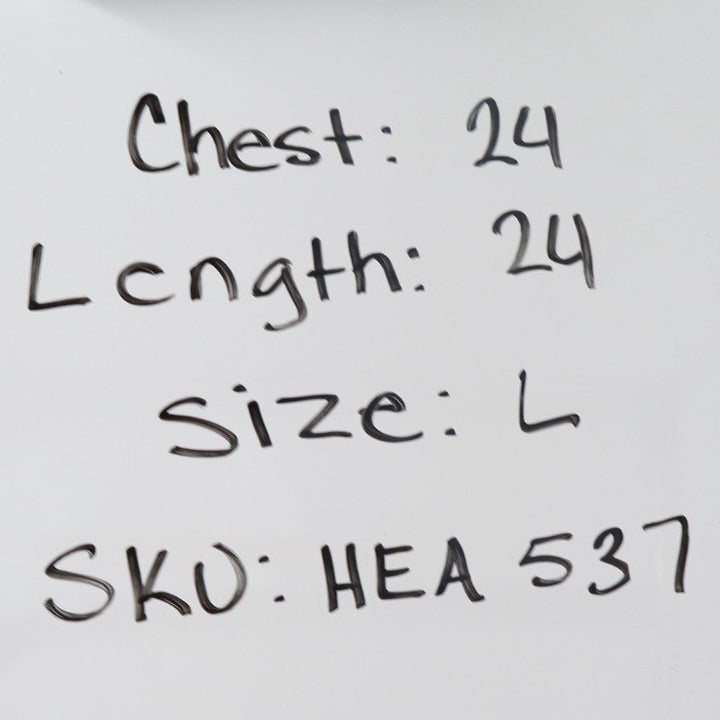 Chest: 24
Length: 24
Size: L
SKU: HEA 537